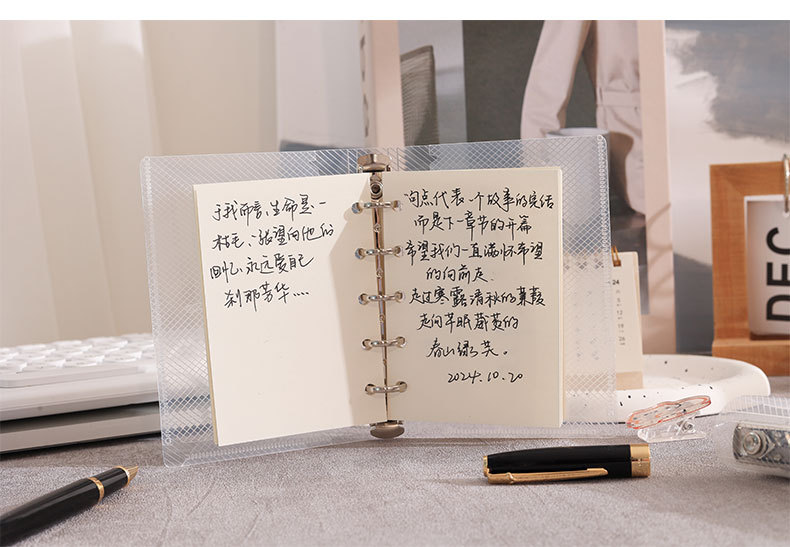 于我而言、生命是一
张望向他们
回忆、永远爱自己
刹那芳华....
句点代表一个故事的完结
而是下一章节的开篇
希望我们一直满怀希望
的向前走.
走过寒露清秋的蒹葭
走向芊眠葳蕤的
春山绿芜。
2024.10.20
DEC
24